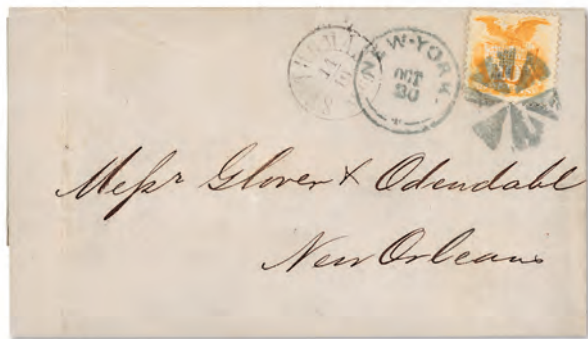 NEW-YORK.
OCT
30
Messr Glover & Odendahl
New Orleans